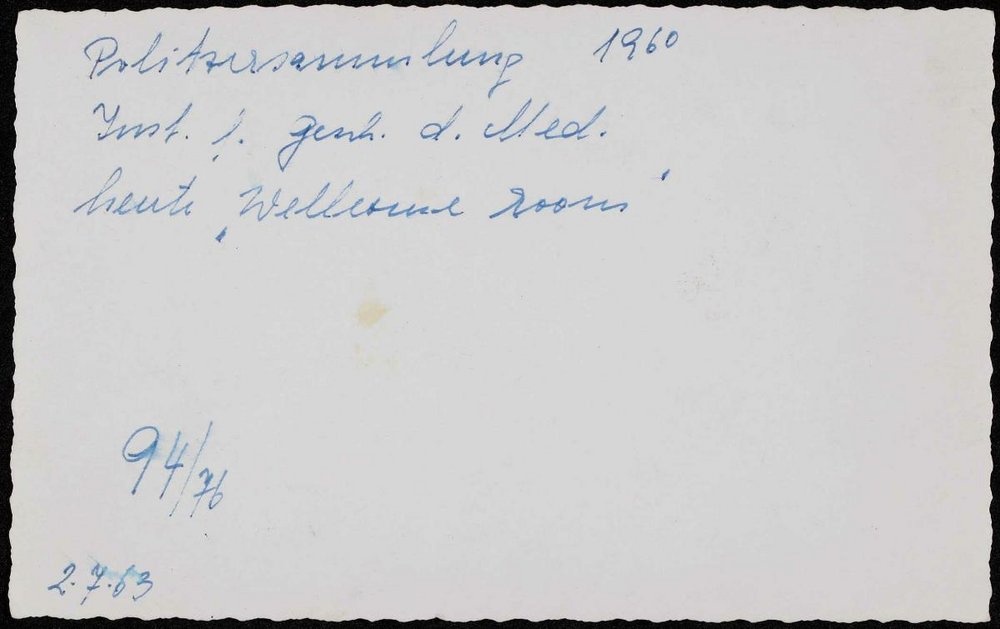 Politzersammlung 1960
Inst. f. Gesch. d. Med.
heute "Wellcome Room"
94/76
2.7.63